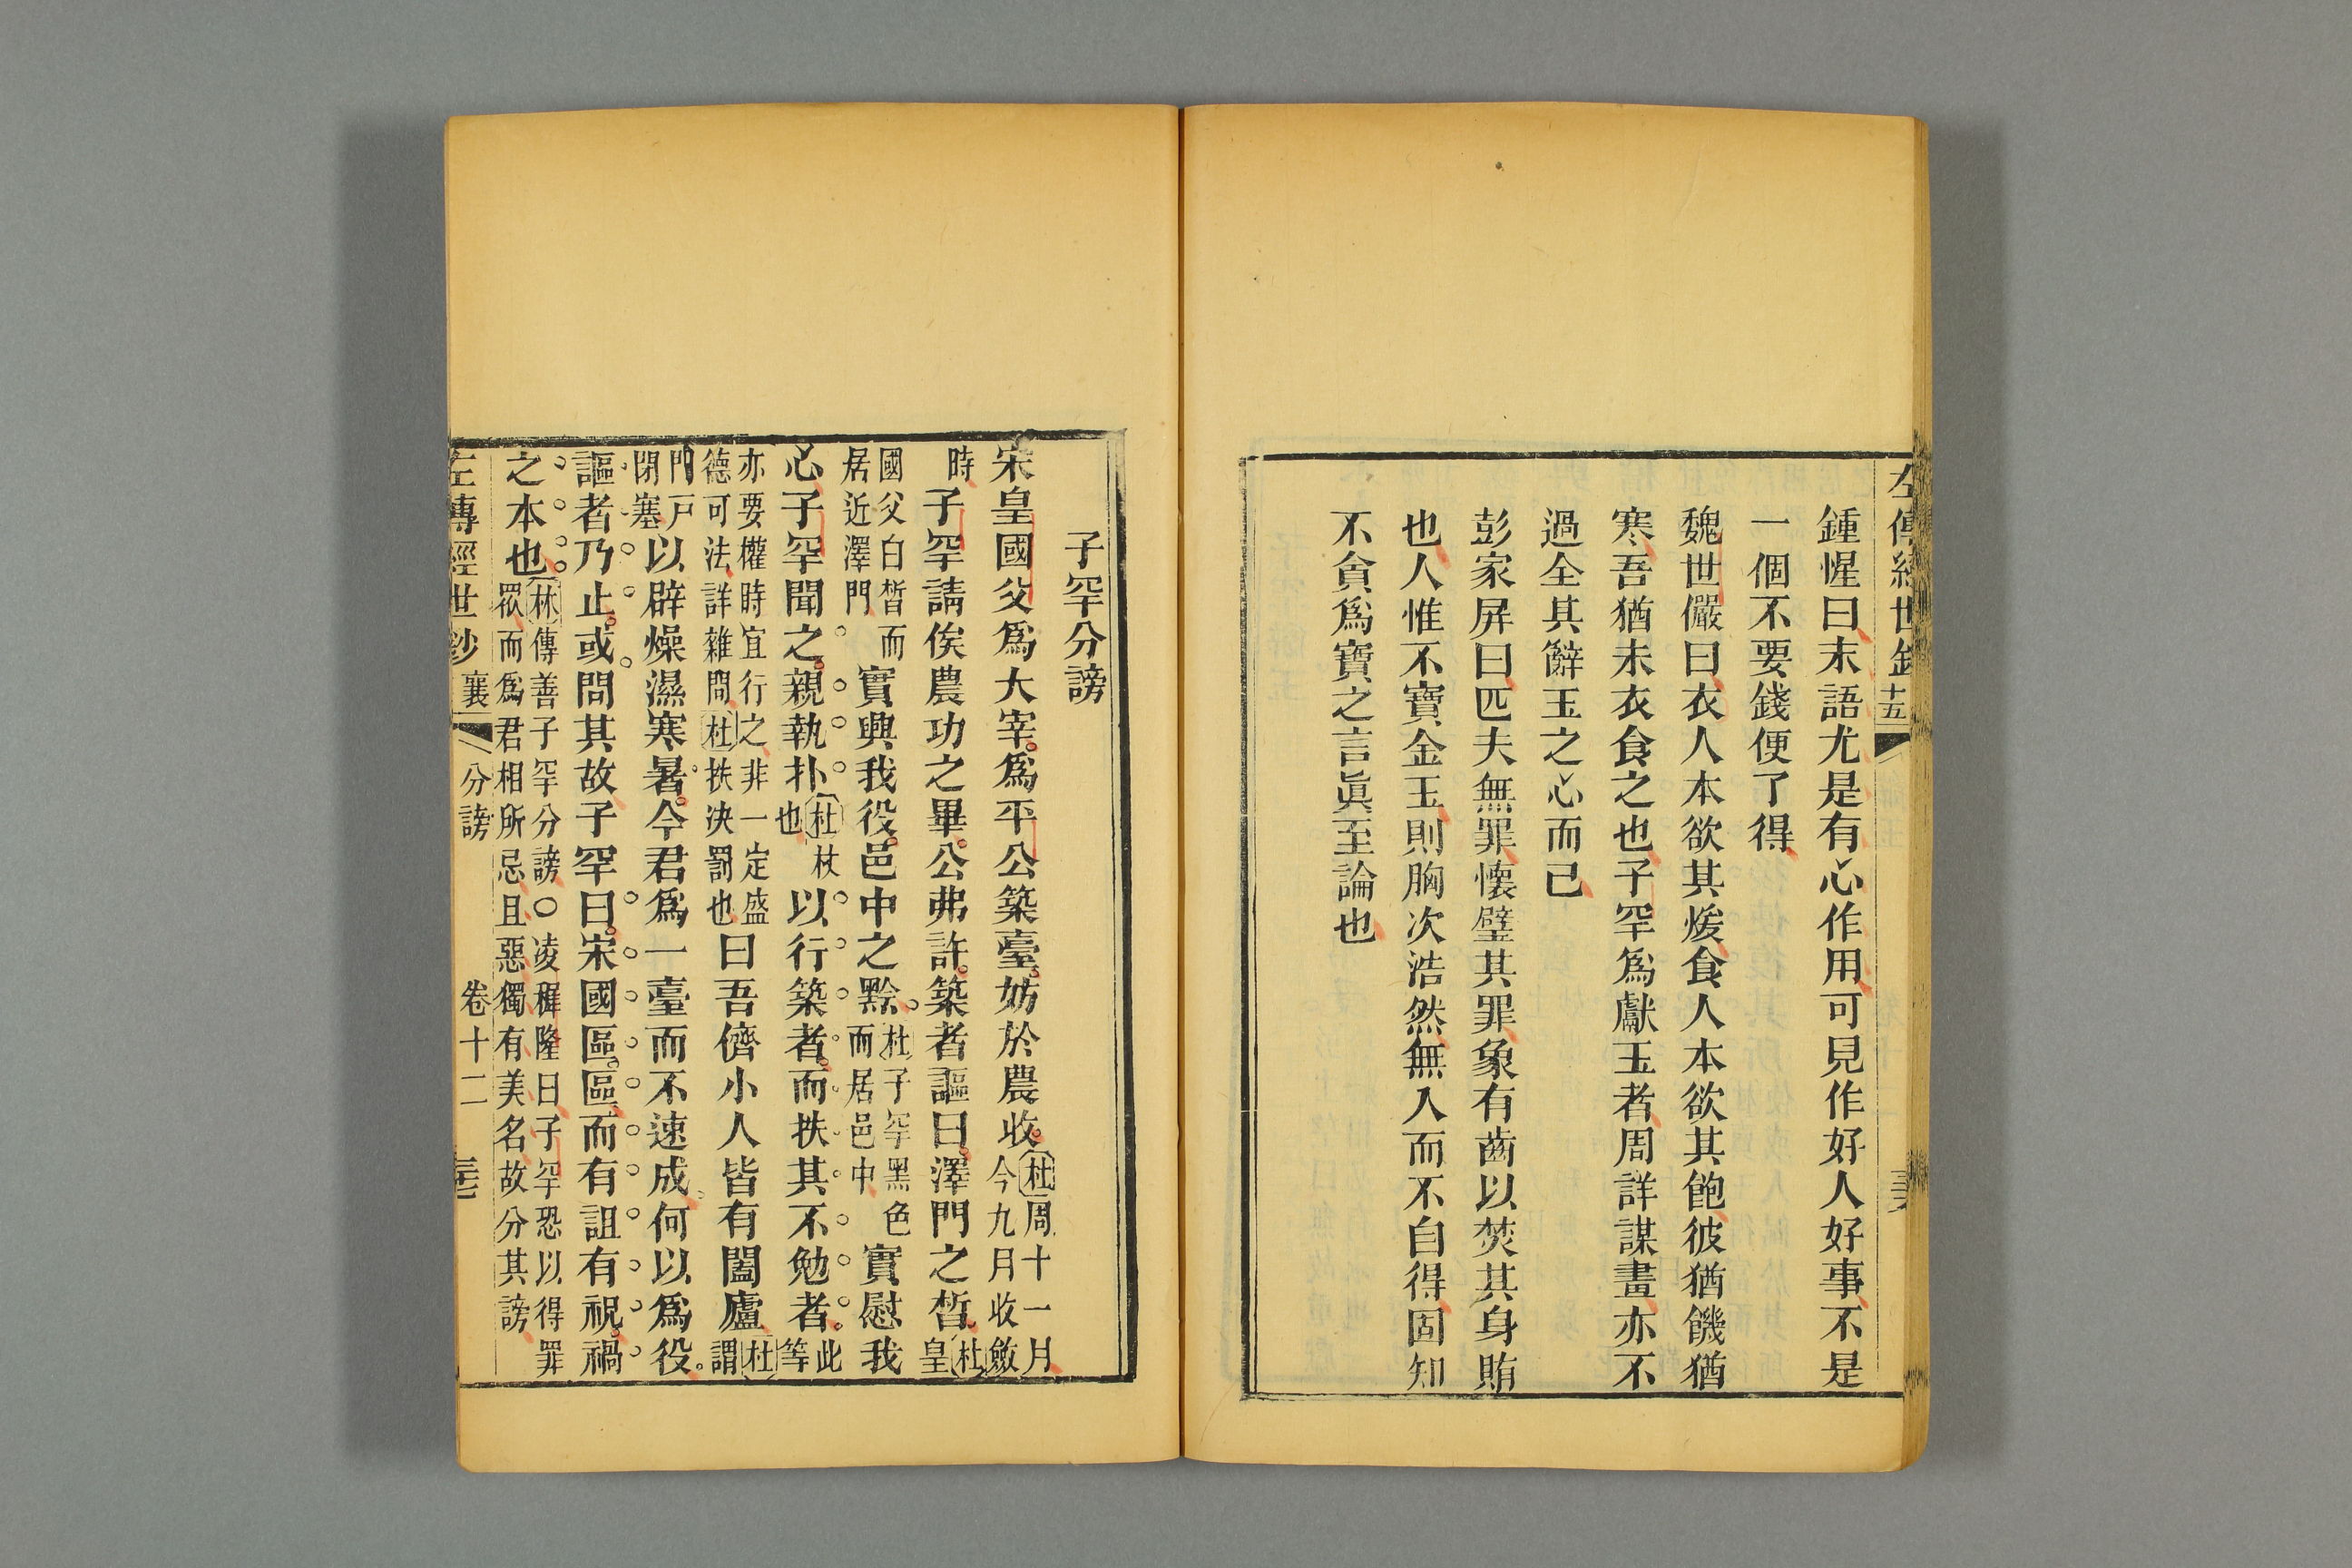 左傳經世鈔 十五
鍾惺曰末語尤是有心作用可見作好人好事不是
一個不要錢便了得
魏世儼曰衣人本欲其煖食人本欲其飽彼猶饑猶
寒吾猶未衣食之也子罕爲獻玉者周詳謀畫亦不
過全其辭玉之心而已
彭家屏曰匹夫無罪懷璧其罪象有齒以焚其身賄
也人惟不寶金玉則胸次浩然無入而不自得固知
不貪爲寶之言眞至論也
子罕分謗
宋皇國父爲大宰爲平公築臺妨於農收杜周十一月今九月收斂
時子罕請俟農功之畢公弗許築者謳曰澤門之晳杜皇
國父白晳而居近澤門實興我役邑中之黔杜子罕黑色而居邑中實慰我
心子罕聞之親執扑杜杖也以行築者而抶其不勉者此等
亦要權時宜行之非一定盛德可法詳雜問杜抶決罰也曰吾儕小人皆有闔廬杜謂
門戶閉塞以辟燥濕寒暑今君爲一臺而不速成何以爲役
謳者乃止或問其故子罕曰宋國區區而有詛有祝禍
之本也林傳善子罕分謗○凌稚隆曰子罕恐以得罪眾而爲君相所忌且惡獨有美名故分其謗
左傳經世鈔 襄 分謗 卷十二